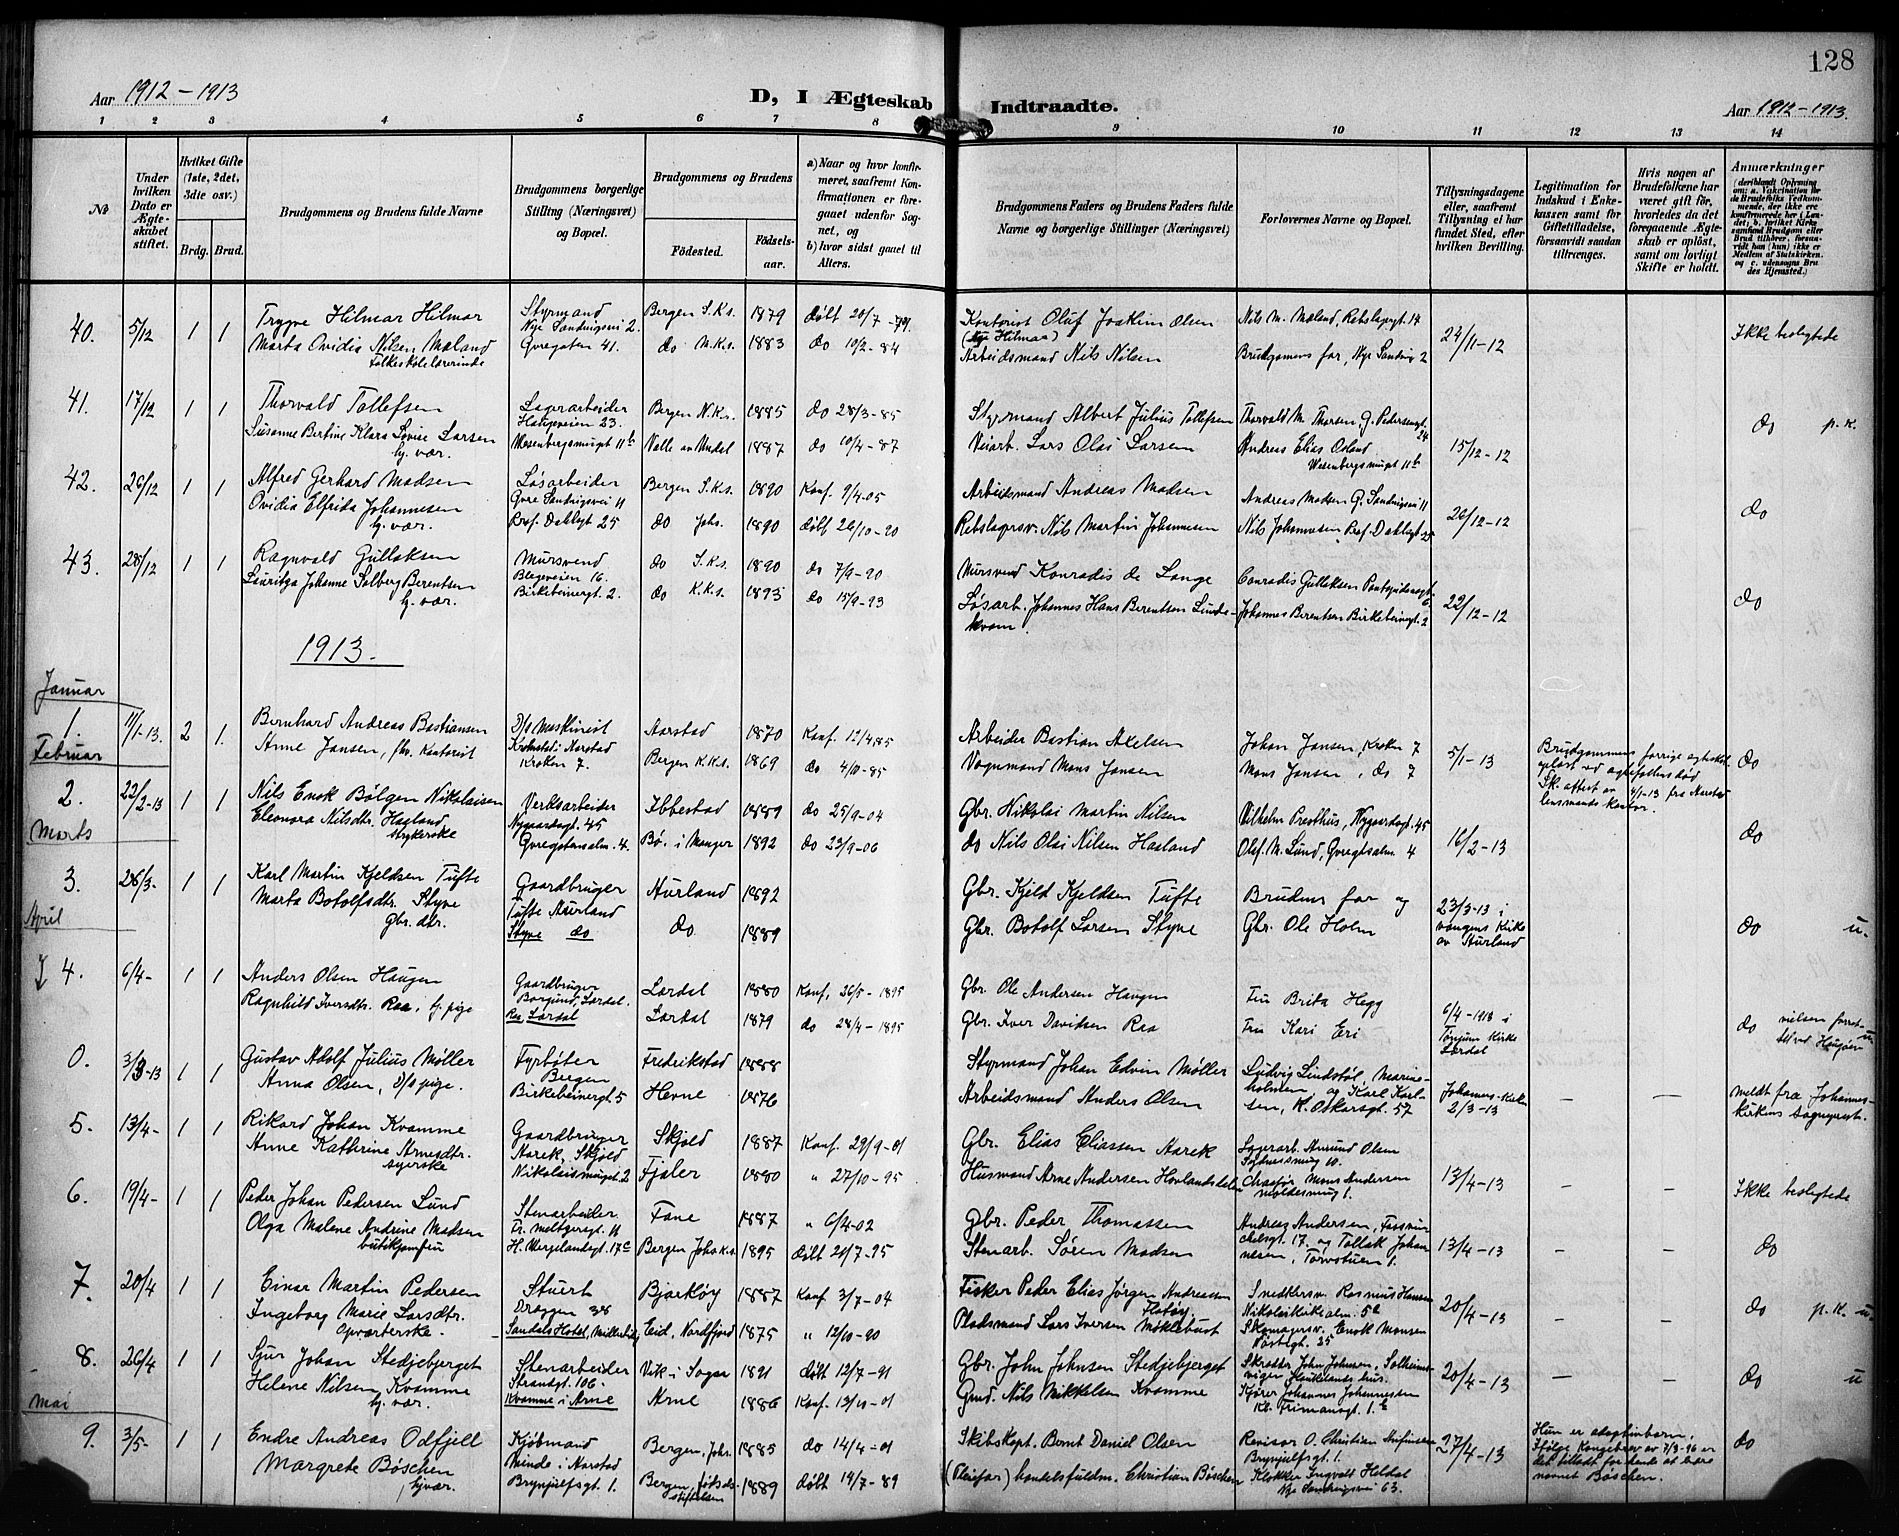 128
Aar 1912-1913
D, I Ægteskab Indtraadte.
Aar 1912-1913.
1 2 3 4 5 6 7 8 9 10 11 12 13 14
No
Under hvilken Dato er Ægteskabet stiftet.
Hvilket Gifte (1ste, 2det, 3die osv.)
Brdg. Brud.
Brudgommens og Brudens fulde Navne
Brudgommens borgerlige Stilling (Næringsvei) og Bopæl.
Brudgommens og Brudens
Födested. Födselsaar.
a) Naar og hvor konfirmeret, saafremt Konfirmationen er foregaaet udenfor Sognet, og
b) hvor sidst gaaet til Alters.
Brudgommens Faders og Brudens Faders fulde Navne og borgerlige Stillinger (Næringsvei)
Forlovernes Navne og Bopæl.
Tillysningsdagene eller, saafremt Tillysning ei har fundet Sted, efter hvilken Bevilling.
Legitimation for Indskud i Enkekassen samt för Giftetilladelse, forsaavidt saadan tiltrænges.
Hvis nogen af Brudefolkene har været gift för, hvorledes da det foregaaende Ægteskab er oplöst, samt om lovligt Skifte er holdt.
Anmærkninger
40. 5/12 1 1 Trygve Hilmar Hilmar Styrmand Nye Sandvigsvei 2. Bergen S.K.s. 1879 døbt 20/7 -79. Kontorist Oluf Joakim Olsen Nils M. Mæland, Rebslagergt 14 24/11-12 Ikke beslægtede
Marta Ovidia Nilsen Mæland Folkeskolelærerinde Øvregaten 41. do M.K.s. 1883 do 10/2-84 Arbeidsmand Nils Nilsen Brudgomens far, Nye Sandvig 2
41. 17/12 1 1 Thorvald Tollefsen Lagerarbeider Haugeveien 23. Bergen N.K.s. 1885 do 28/3-85 Styrmand Albert Julius Tollefsen Thorvald M. Thorsen, G. Pedersensgt 24 15/12-12 do p.k.
Susanne Bertine Klara Lovise Larsen hj. vær. Wesenbergsmugt 11b Valle av Undal 1887 do 10/4-87 Veiarb. Lars Olai Larsen Andreas Elias Osland Wesenbergsmugt 11b
42. 26/12 1 1 Alfred Gerhard Madsen Løsarbeider Øvre Sandvigsvei 11 Bergen S.K.s. 1890 Konf. 9/4-05 Arbeidsmand Andreas Madsen Andreas Madsen G. Sandvigsvei 11 26/12-12 do
Ovidia Elfrida Johannesen hj. vær. Prof. Dahlsgt 25 do Johs. 1890 døbt 26/10-90 Rebslagersv. Nils Martin Johannesen Nils Johannesen, Prof. Dahlsgt 25
43. 28/12 1 1 Ragnvald Gullaksen Mursvend Blegeveien 16. do S.K.s. 1890 do 7/9-90 Mursvend Konradis de Lange Conradis Gullaksen 22/12-12 do
Lauritza Johanne Solberg Berentsen hj. vær. Birkebeinergt. 2. do K.K.s. 1893 do 15/9-93 Løsarb. Johannes Hans Berentsen Lindekvam. Johannes Berentsen Birkebeinergt. 2
1913.
Januar
1. 11/1-13. 2 1. Bernhard Andreas Bastiansen D/s Maskinist Kronstad i Aarstad Aarstad 1870 Konf. 12/4 85 Arbeider Bastian Axelsen Johan Jansen, Kroken 7 5/1-13 Brudgommens forrige egteskab opløst ved egtefællens død Sk. attest av 4/1-13 fra Aarstad lensmands kontor. do
Anne Jansen, fhv. Kontorist Kroken 7. Bergen K.K.s. 1869 do 4/10-85 Vognmand Mons Jansen Mons Jansen, do 7
Februar
2. 22/2-13 1 1 Nils Enok Bølgen Nikolaisen Verksarbeider Nygaardsgt. 45 Ibbestad 1889 do 25/9-04 Gbr. Nikolai Martin Nilsen Vilhelm Presthus, Nygaardsgt. 45 16/2-13 do
Eleonora Nilsdtr. Hagland strykerske Øvregatensalm. 4. Bø. i Manger 1892 do 23/9-06 do Nils Olai Nilsen Hagland Olaf M. Lund, Øvregtsalm. 4
Marts
3. 28/3- 1 1 Karl Martin Kjeldsen Tufte Gaardbruger Tufte Aurland Aurland 1892 Gbr. Kjeld Kjeldsen Tufte Brudens far og 23/3-13 i vangens Kirke av Aurland do u.
Marta Botolfsdtr. Styve Gbr. dtr. Styve do do. 1889 Gbr. Botolf Larsen Styve Gbr. Ole Holm
April
4. 6/4- 1 1 Anders Olsen Haugen Gaardbruger Borgund, Lærdal. Lærdal 1880 Konf. 26/5-1895 Gbr. Ole Andersen Haugen Fru Brita Hegg 6/4-1913 i Tønjum Kirke Lærdal do vielsen forrettet ved Haugøen u
Ragnhild Iversdtr. Raa, hj. pige Raa, Lærdal Lærdal 1879 do 28/4-1895 Gbr. Iver Davidsen Raa Fru Kari Eri
0. 3/3-13 1 1 Gustav Adolf Julius Møller Fyrbøter Bergen Fredrikstad 1888 Styrmand Johan Edvin Møller Ludvig Lindstøl, Marineholmen og Karl Karlsen, K. Oskarsgt. 57 Johannes-Kirken 2/3-13 — — meldt fra Johanneskirkens Sogneprest.
Anna Olsen, D/s pige. Birkebeinergt 5 Hevne 1876 Arbeidsmand Anders Olsen
5. 13/4- 1 1 Rikard Johan Kvamme Gaardbruger Aarek, Skjold Skjold 1887 Konf. 29/9-01 Gbr. Elias Eliassen Aarek Lagerarb. Amund Olsen Sydnessmug 10. 13/4-13 — —
Anne Katherine Arnesdtr. syerske Nikolaismuget 2 Fjaler 1880 " 27/10-95 Husmand Arne Andersen Hovlandsdalen Chaafør Mons Andersen Moldesmug 1.
6. 19/4- 1 1 Peder Johan Pedersen Lund Stenarbeider Fr. Meltzersgt. 11 Fane 1887 " 6/4-02 Gbr. Peder Thomassen Andreas Andersen, 17. og Tollak Johannesen, Torvstuen 1. 13/4-13 — — Ikke beslegtede
Olga Malene Andrine Madsen butikjomfru H. Wergelandsgt. 17c Bergen Johs k.s 1895 døbt 20/7-95 Stenarb. Søren Madsen do
7. 20/4 1 1 Einar Martin Pedersen Stuert Dræggen 38 Bjarkøy 1887 Konf 3/7-04 Fisker Peder Elias Jørgen Andreassen Snedkersv. Rasmus Hansen Nikolaikirkealm. 5a 20/4-13 — — do p.k. u.
Ingeborg Marie Larsdtr. opvarterske Sandals Hotel, Eid, Nordfjord 1875 " 12/10-90 Pladsmand Lars Iversen Myklebust Skomagersv. Enok Monsen Vestregt. 25
8. 26/4 1 1 Sjur Johan Stedjeberget Stenarbeider Strandgt. 106. Vik i Sogn 1891 døbt 12/7-91 Gbr. John Johnsen Stedjeberget Skrædder John Johnsen, Solheimsvigen Haukelands hus. 20/4-13 — — do u
Helene Nilsen Kvamme hj. vær. Kvamme i Arne Arne 1886 Konf. 13/10-01 Grmd. Nils Mikkelsen Kvamme Kjører Johannes Johannessen Kl. Frimansgt. 1.
Mai
9. 3/5- 1 1 Endre Andreas Odfjell Kjøbmand Minde i Aarstad Bergen, Johs. 1885 do 14/4-01 Skibskapt. Bernt Daniel Olsen Revisor O. Christian Brynjulfsgt. 1. 27/4-13 Hun er adoptivbarn. Ifølge Kongebrev av 7/3-96 er det tilladt for hende at bære navnet Bøschen. do
Margrete Bøschen hj. vær. Brynjulfsgt. 1. Bergen, fødselsstiftelsen 1889 døbt 14/7-89 (Pleiefar) handelsfuldm. Christian Bøschen Klokker Ingvald Heldal Nye Sandvigsvei 63.